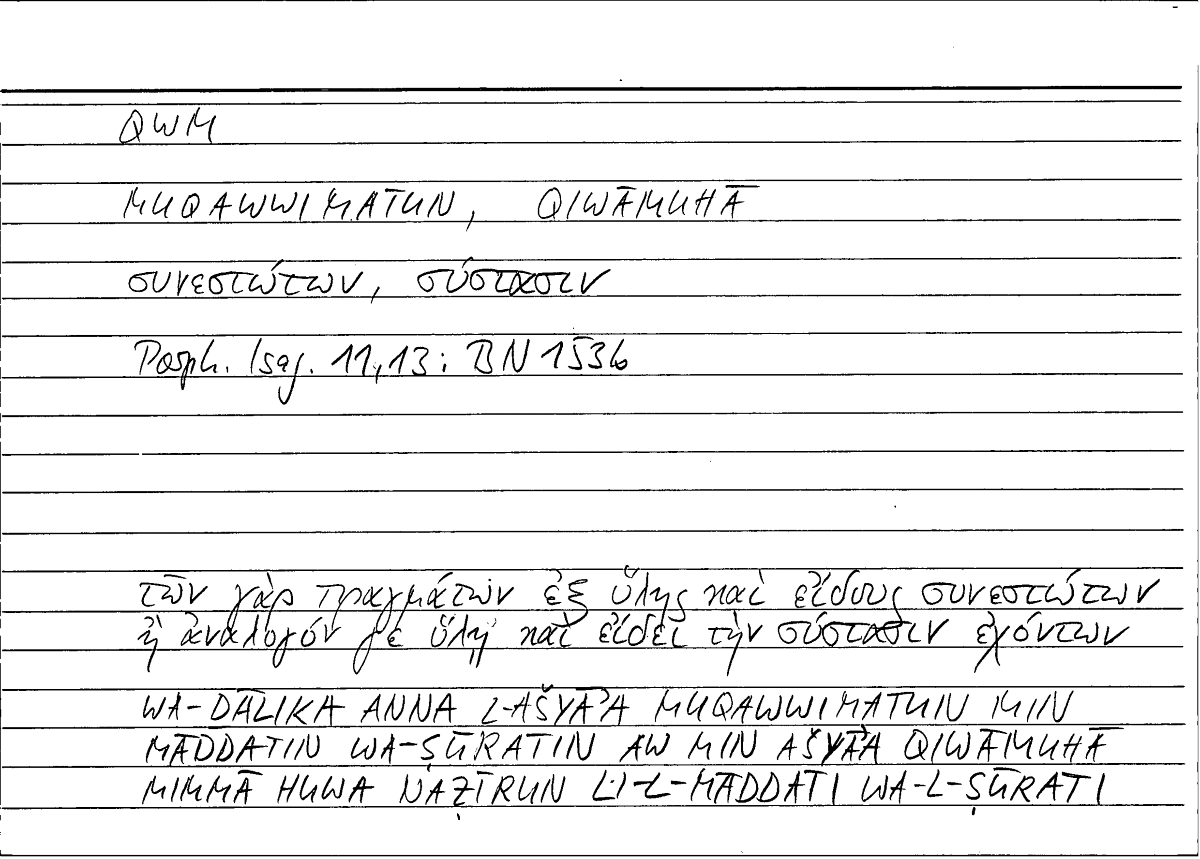 QWM
MUQAWWIMATUN, QIWĀMUHĀ
συνεστώτων, σύστασιν
Porph. Isag. 11,13: BN 153b
τῶν γὰρ πραγμάτων ἐξ ὕλης καὶ εἴδους συνεστώτων
ἢ ἀνάλογόν γε ὕλῃ καὶ εἴδει τὴν σύστασιν ἐχόντων
WA-ḎĀLIKA ANNA L-AŠYĀʾA MUQAWWIMATUN MIN
MĀDDATIN WA-ṢŪRATIN AW MIN AŠYĀʾA QIWĀMUHĀ
MIMMĀ HUWA NAẒĪRUN LI-L-MĀDDATI WA-L-ṢŪRATI